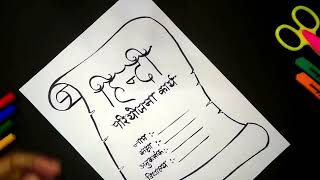 हिन्दी
परियोजना कार्य
नाम :-
कक्षा :-
अनुक्रमांक :-
विद्यालय :-